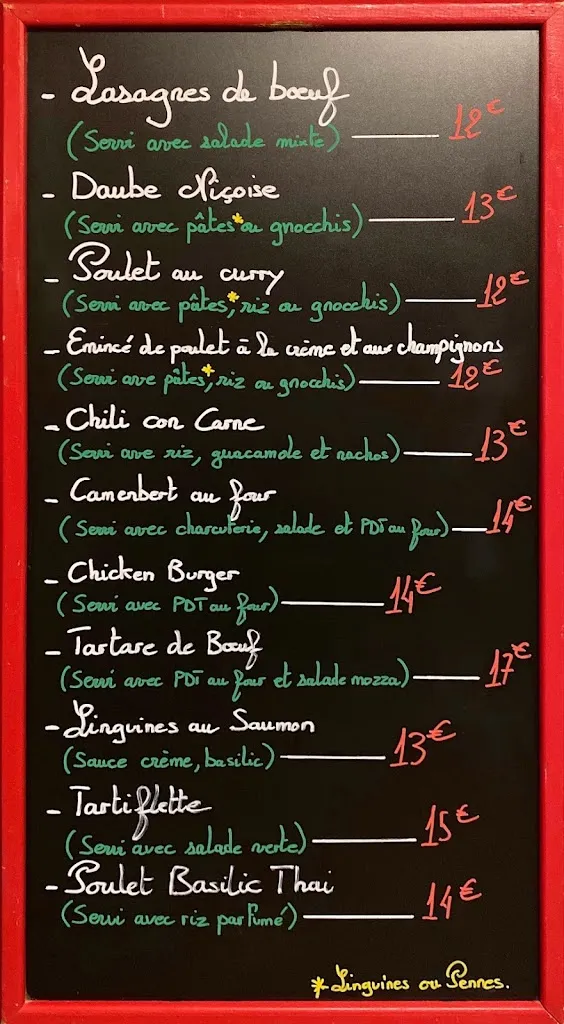 - Lasagnes de bœuf
(Servi avec salade mixte) 12€
- Daube Niçoise
(Servi avec pâtes* ou gnocchis) 13€
- Poulet au curry
(Servi avec pâtes*, riz ou gnocchis) 12€
- Emincé de poulet à la crème et aux champignons
(Servi ave pâtes*, riz ou gnocchis) 12€
- Chili con Carne
(Servi ave riz, guacamole et nachos) 13€
- Camembert au four
(Servi avec charcuterie, salade et PDT au four) 14€
- Chicken Burger
(Servi avec PDT au four) 14€
- Tartare de Bœuf
(Servi avec PDT au four et salade mozza) 17€
- Linguines au Saumon
(Sauce crème, basilic) 13€
- Tartiflette
(Servi avec salade verte) 15€
- Poulet Basilic Thai
(Servi avec riz parfumé) 14€
* Linguines ou Pennes.